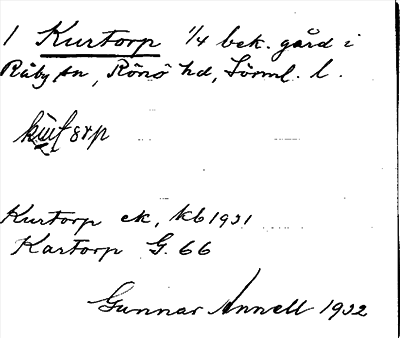 1 Kurtorp 1/4 bek. gård i
Råby sn, Rönö hd, Sörml. l.
Kurtorp ek, kb 1931
Kartorp G. 66
Gunnar Annell 1932